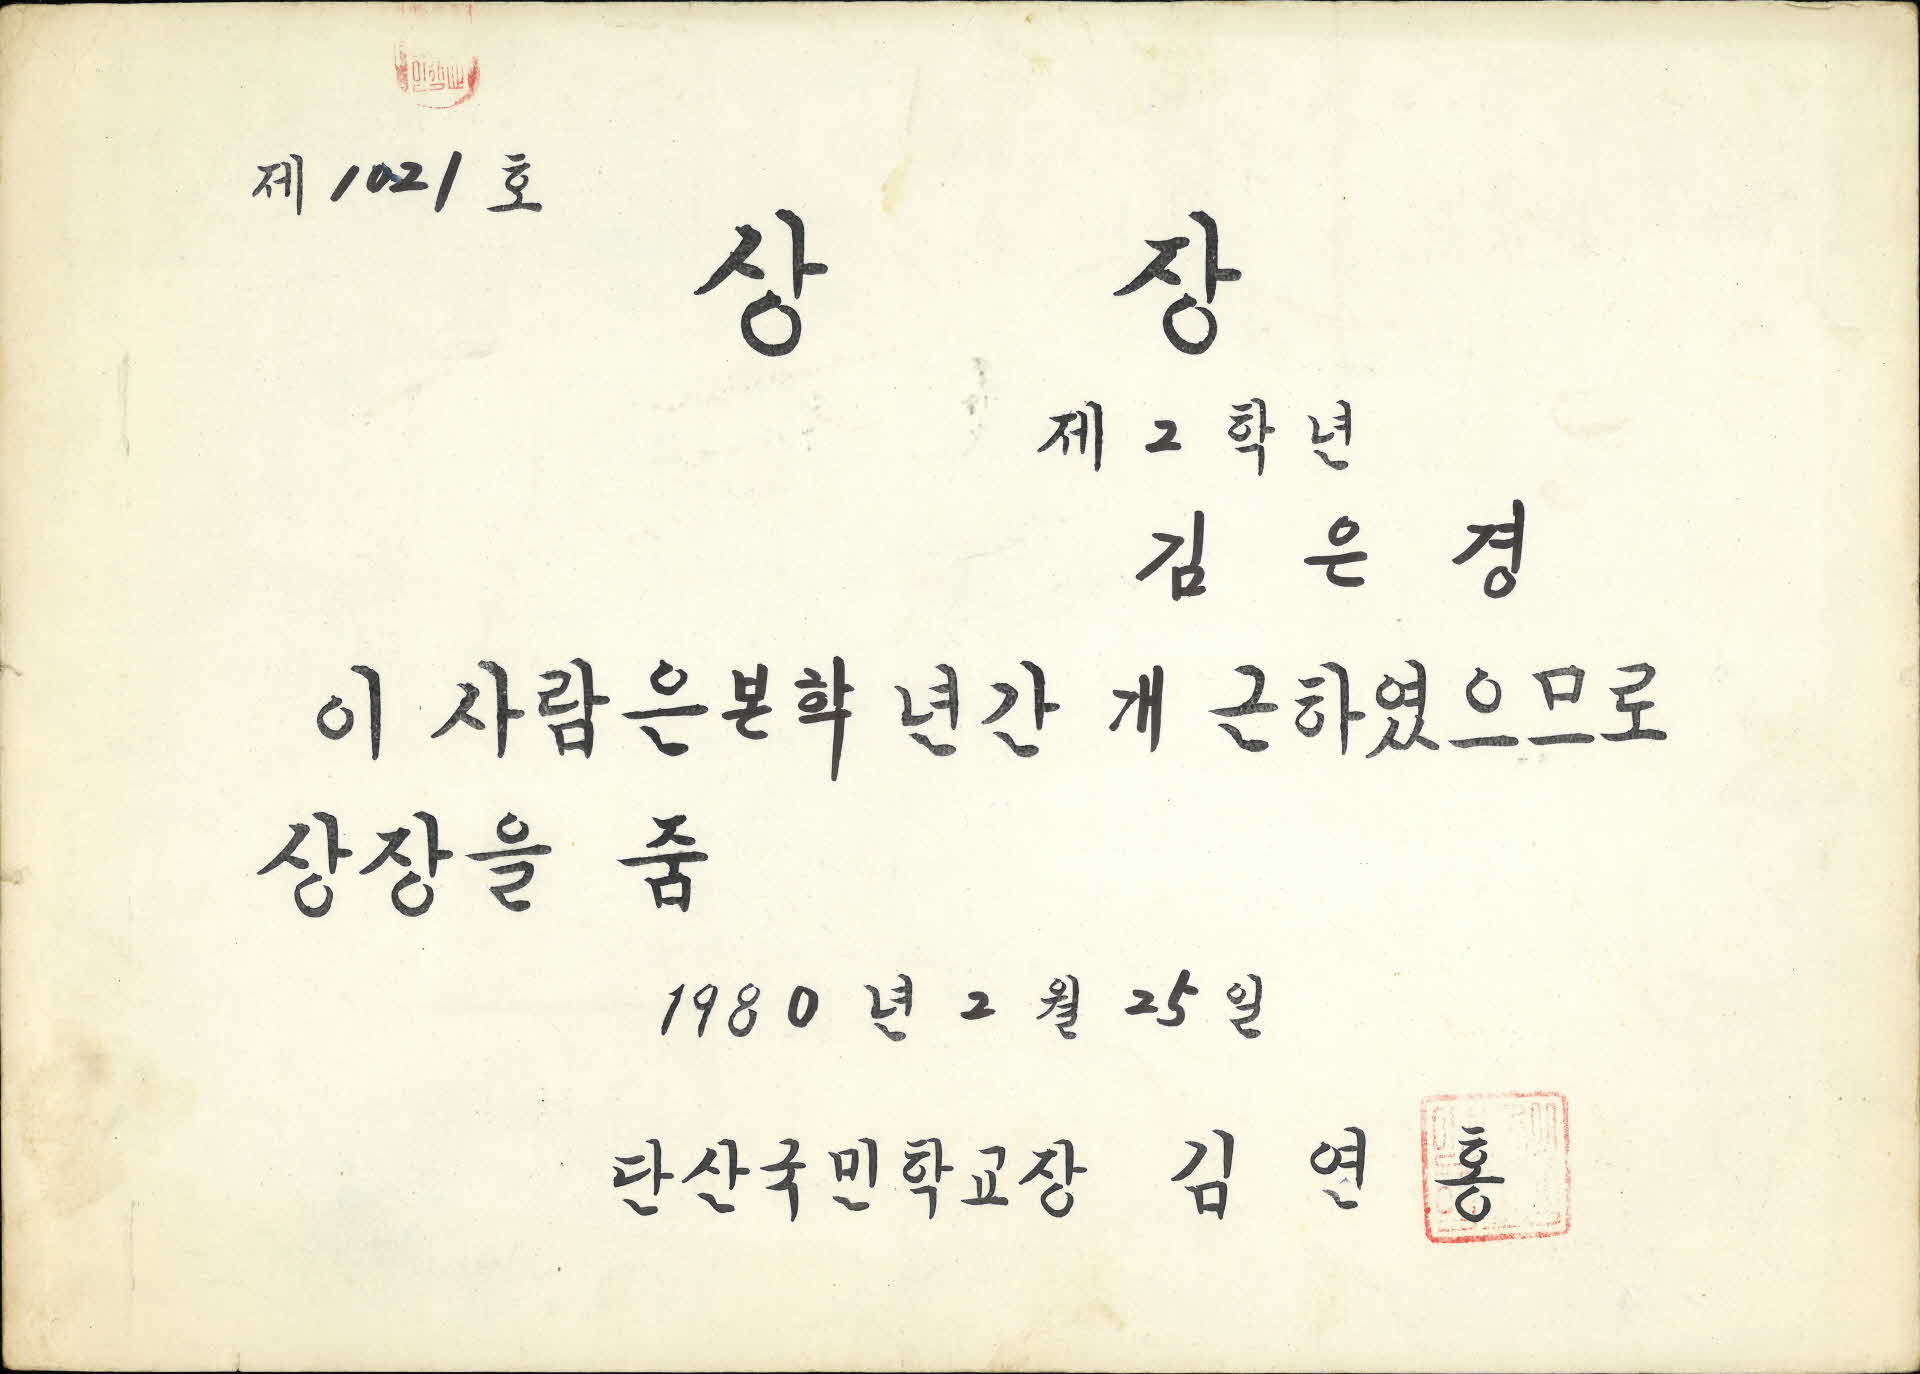 제 1021 호
상 장
제 2 학년
김 은 경
이 사람은 본학년간 개근하였으므로
상장을 줌
1980 년 2 월 25 일
단산국민학교장 김 연 홍